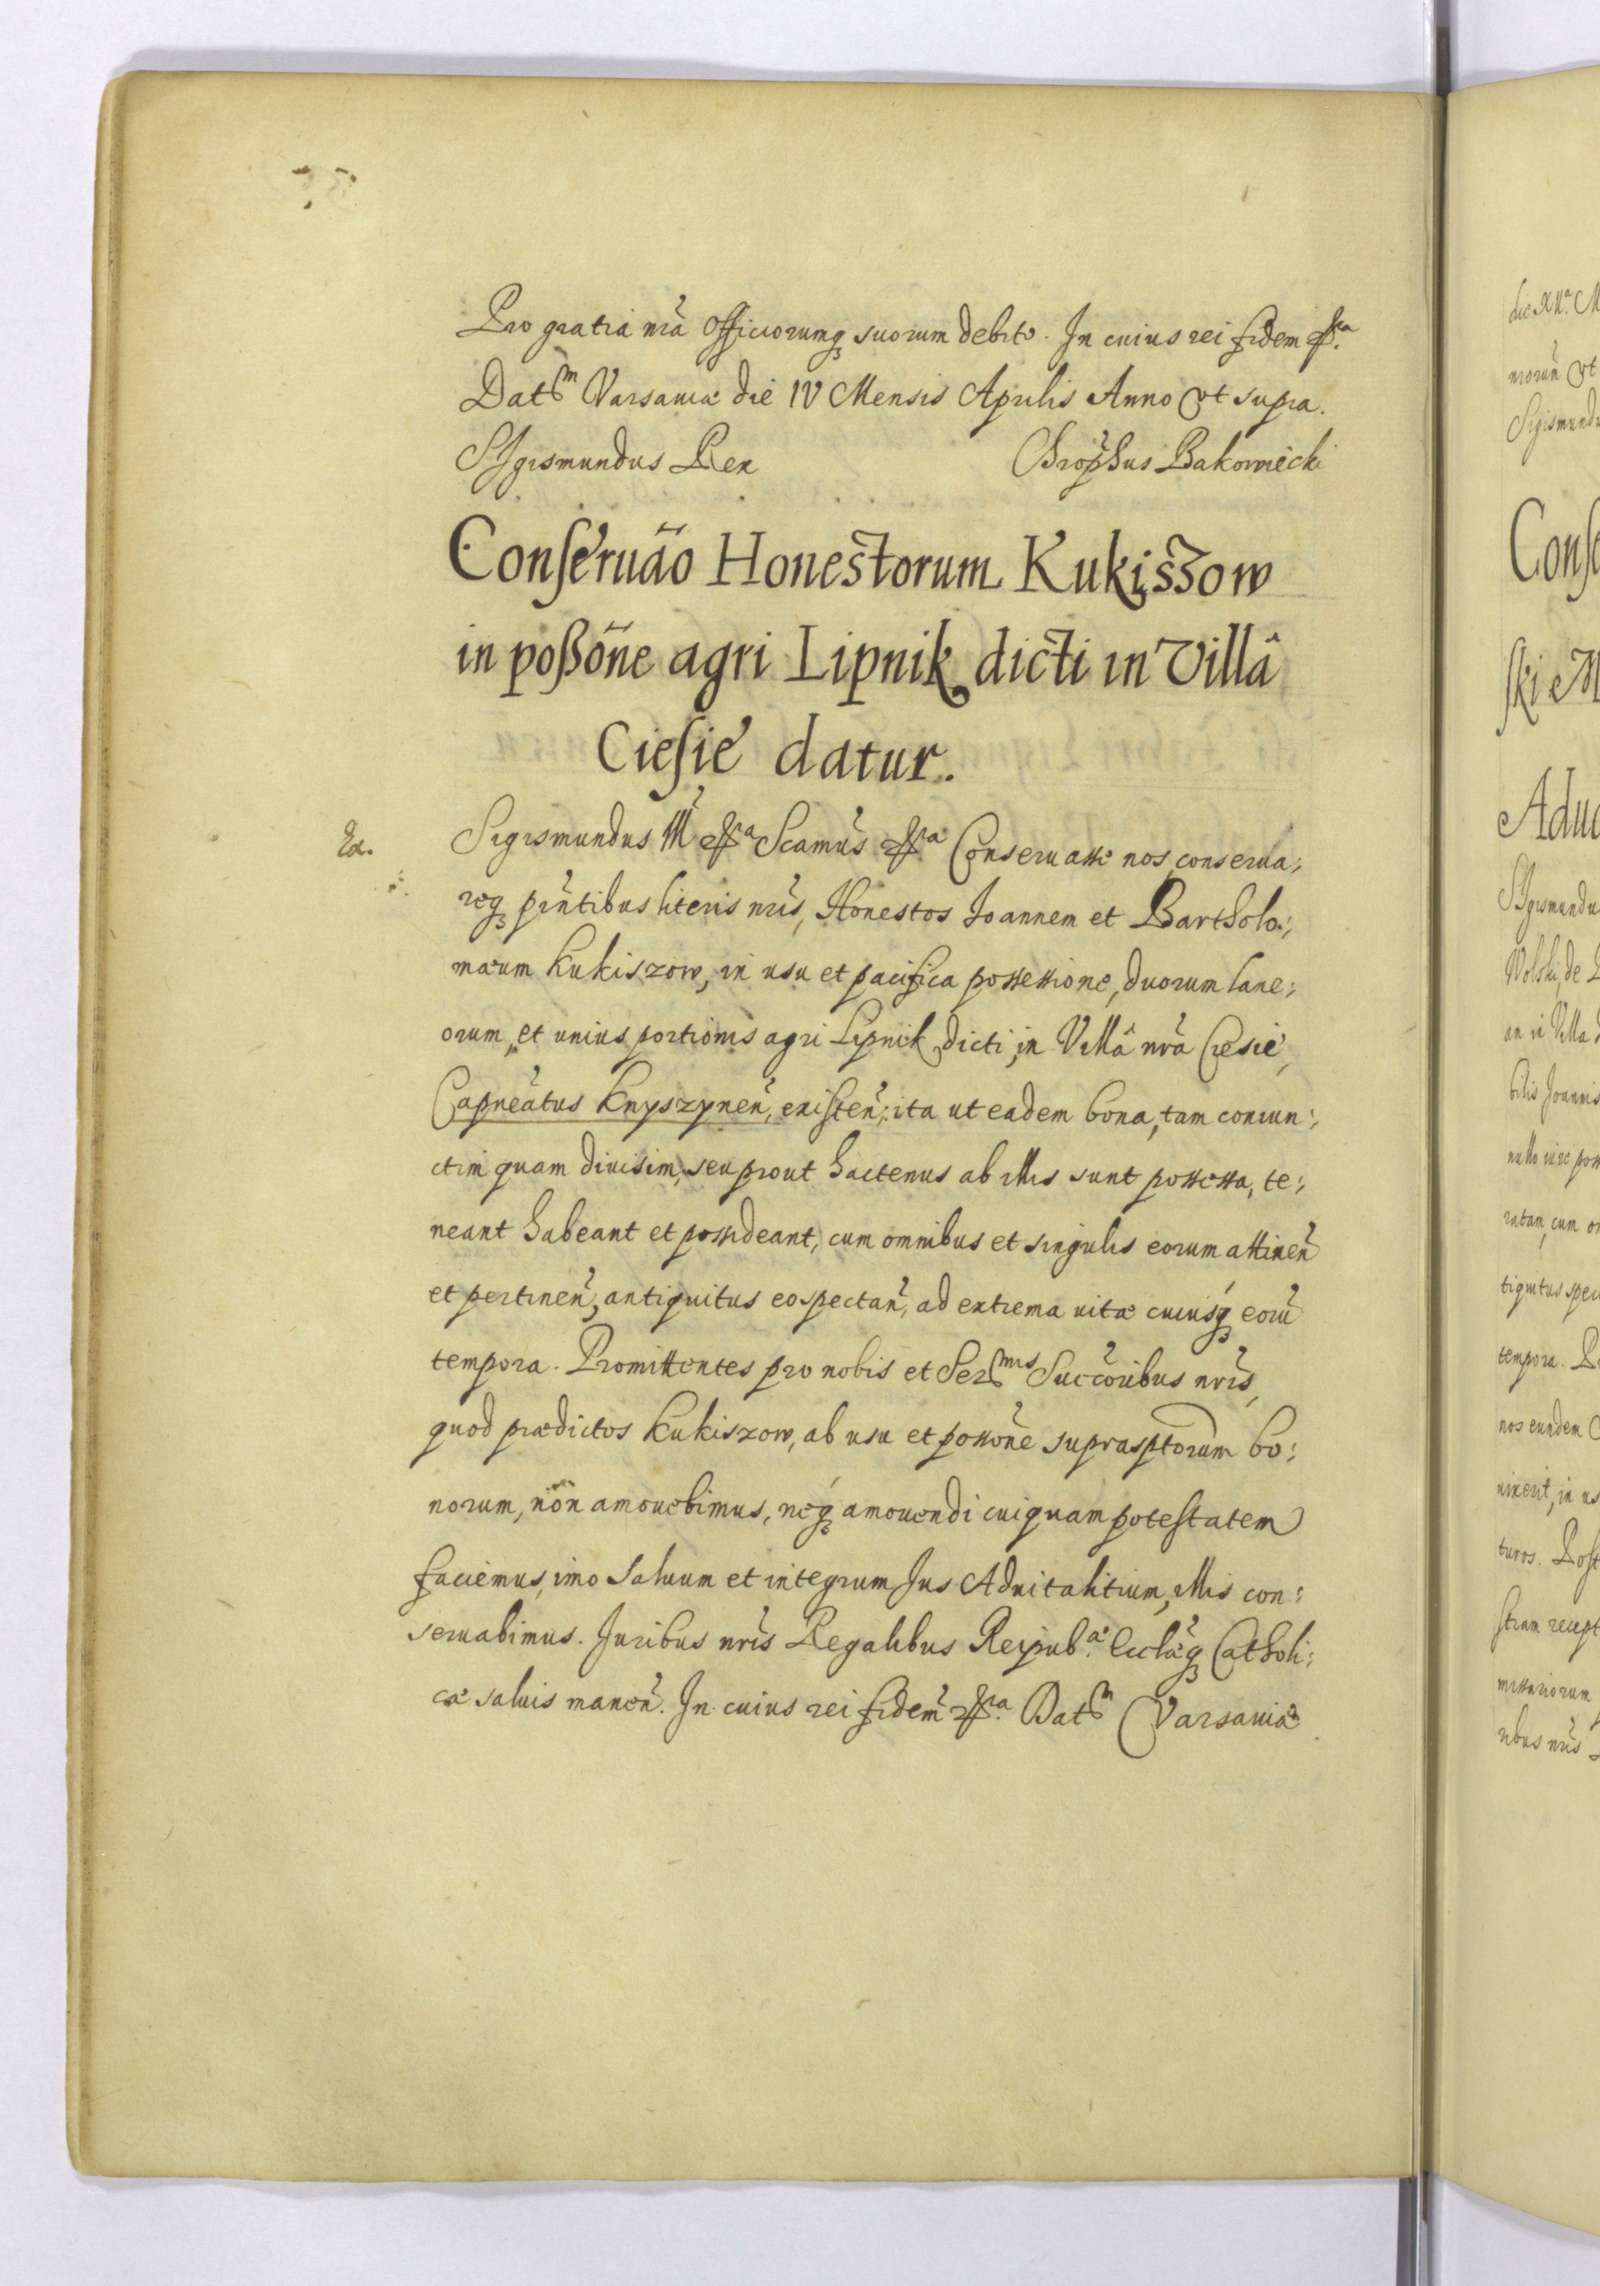 Pro gratia nrã Officiorumq suorum debito. In cuius rei fidem etcra.
Datm Varsauiæ die IV Mensis Aprilis Anno Vt supra.
SIgismundus Rex Chrophus Bakowiecki
Conseruão Honestorum Kukiszow
in poßõne agri Lipnik dicti in Villâ
Ciesie datur.
Ex.
Sigismundus III etcra Scamus etcra Conseruasse nos, conserua:
req pñtibus literis nris, Honestos Ioannem et Bartholo:
mæum Kukiszow, in usu et pacifica possessione, duorum lane:
orum, et unius portionis agri Lipnik dicti, in Villâ nrã Ciesie,
Capneãtus Knyszyneñ, existeñ: ita ut eadem bona, tam coniun:
ctim quam diuisim, seu prout hactenus ab illis sunt possessa, te:
neant habeant et possideant, cum omnibus et singulis eorum attineñ
et pertineñ, antiquitus eo spectañ, ad extrema uitæ cuiusq eorũ
tempora. Promittentes pro nobis et Sermis Succoribus nris,
quod prædictos Kukiszow, ab usu et possõne suprasptorum bo:
norum, non amouebimus, neq amouendi cuiquam potestatem
faciemus, imo saluum et integrum Ius Aduitalitium, illis con:
seruabimus. Iuribus nris Regalibus Reipub.æ Ecclæq Catholi:
cæ saluis maneñ. In cuius rei fidem etcra. Datm Varsauiæ
die XV.a M
Vt
Sigismundu
Conse
ski M
Adui
SIgismundu
Wolski, de
an in Villa
bilis Joannis
nullo iure poss
ratam, cum o
tiquitus spec
tempora. P
nos eundem C
uixerit, in us
turos. Post
stram recept
missariorum
ribus nris